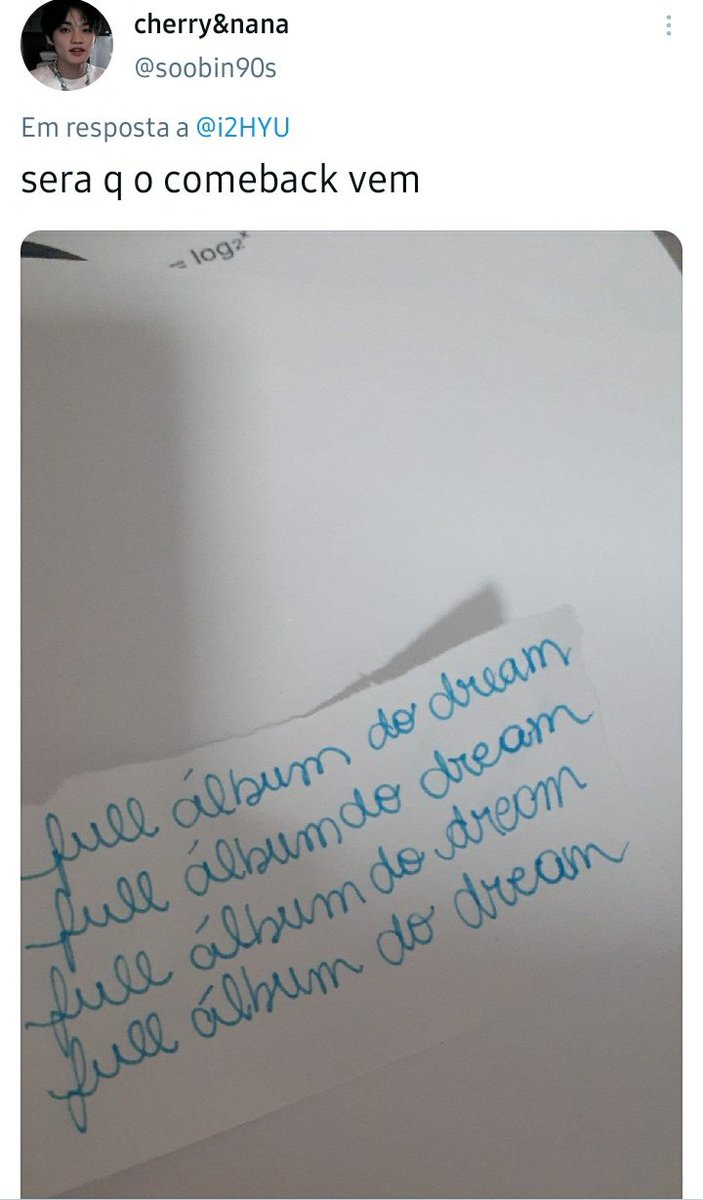 cherry&nana
@soobin90s
Em resposta a @i2HYU
sera q o comeback vem
= log₂ˣ
full álbum do dream
full álbum do dream
full álbum do dream
full álbum do dream